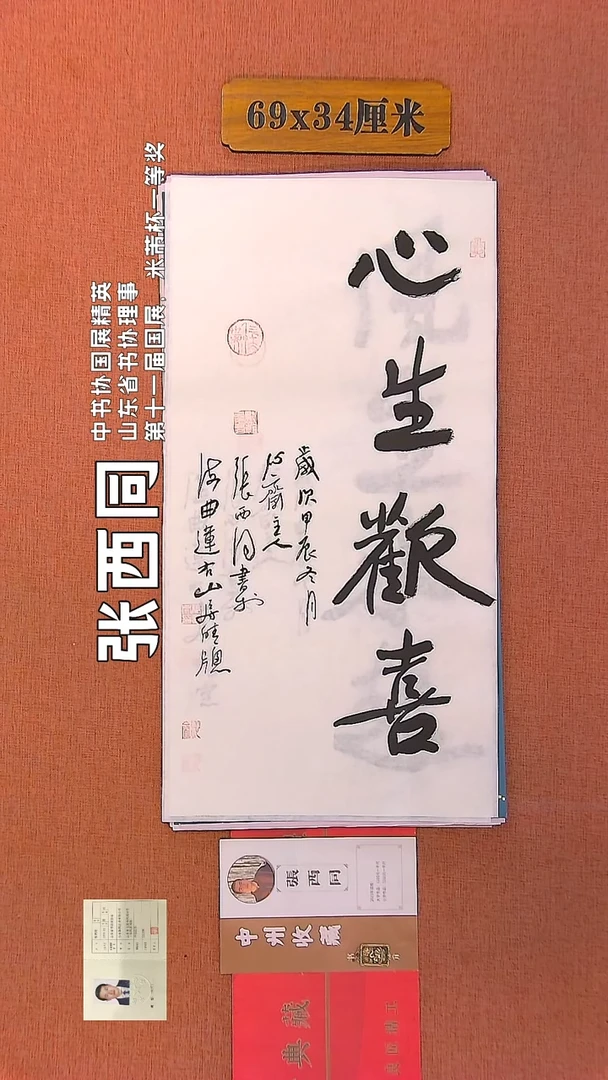 69x34厘米
心生歡喜
歲次甲辰冬月
心齋主人
張西同書於
海曲蓮古山居晴窗
张西同
中书协国展精英
山东省书协理事
第十一届国展，米芾杯一等奖
張西同
中州收藏
典藏